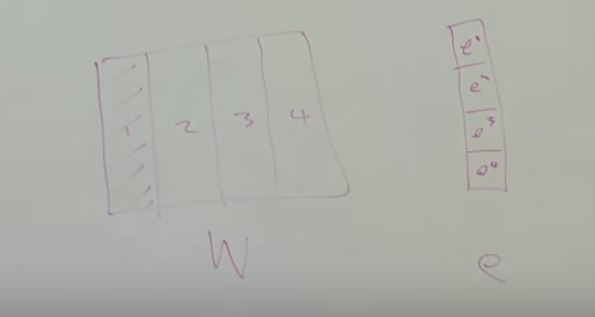 1 2 3 4
W
e¹
e²
e³
e⁴
e